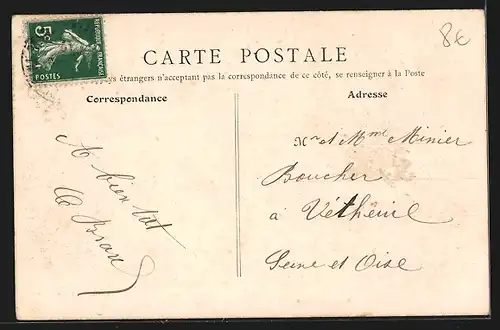 8€
5c
REPUBLIQUE FRANÇAISE
POSTES
CARTE POSTALE
ys étrangers n'acceptant pas la correspondance de ce côté, se renseigner à la Poste
Correspondance
A bien tôt
Adresse
Mr et Mme Minier
Boucher
à Vétheuil
Seine et Oise